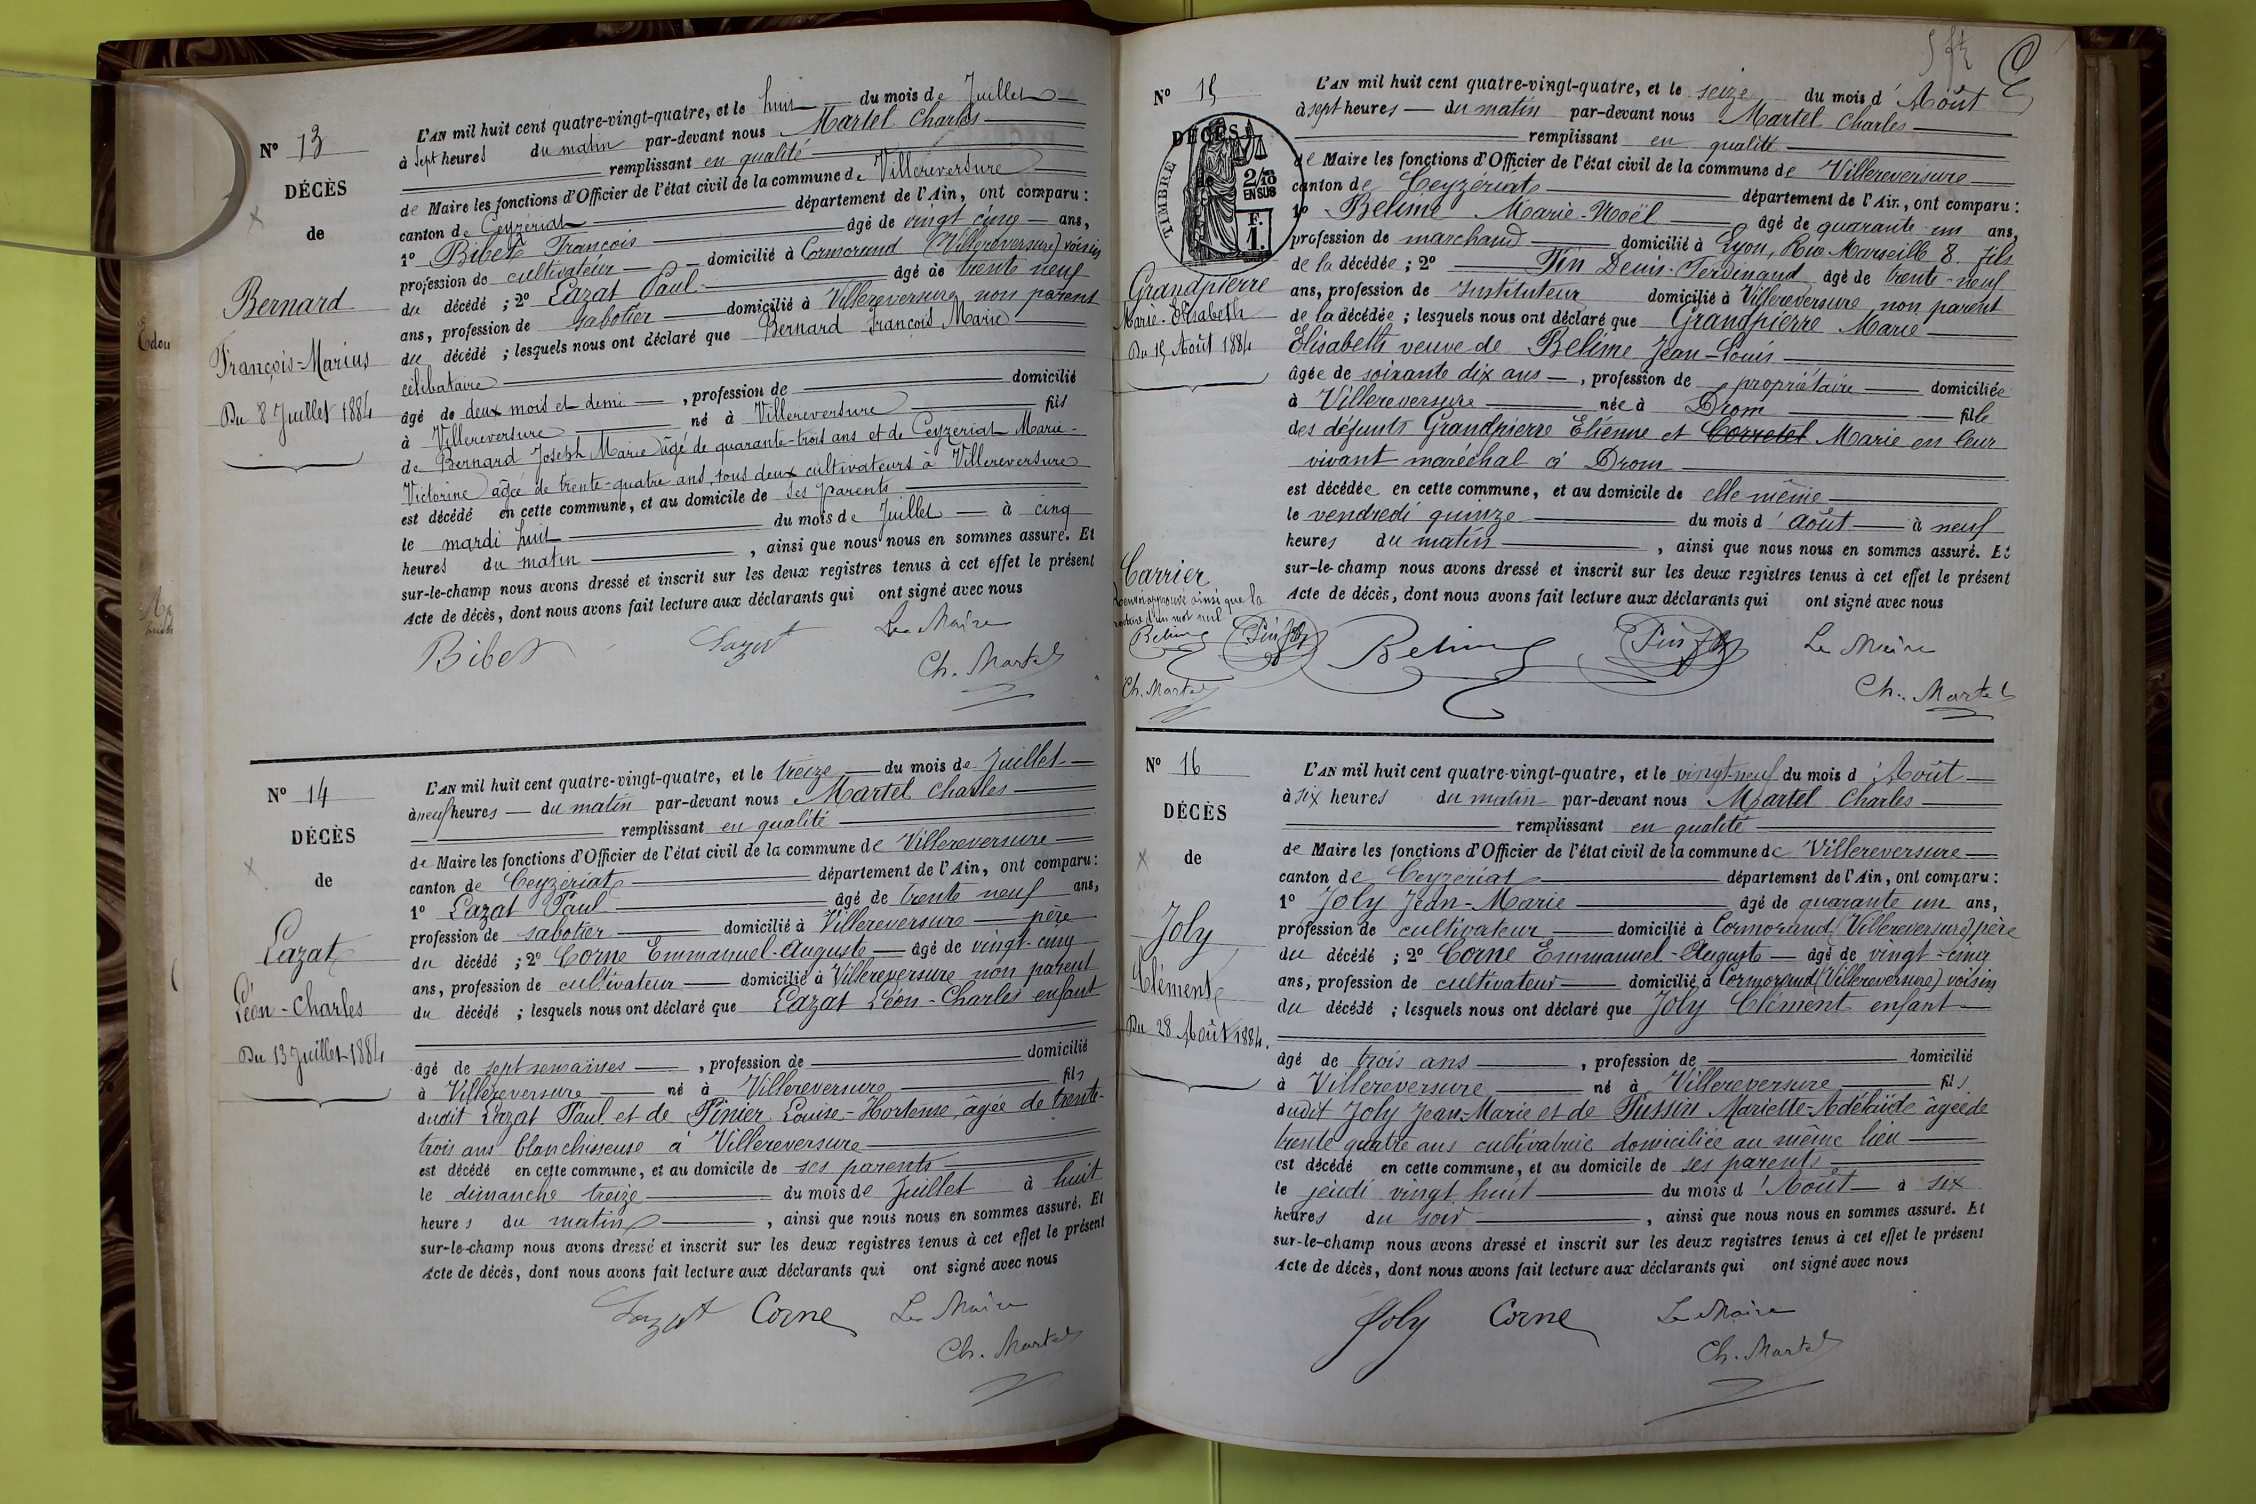 Edou
N° 13
DÉCÈS
de
Bernard
François-Marius
Du 8 Juillet 1884
L'AN mil huit cent quatre-vingt-quatre, et le huit du mois de Juillet
à sept heures du matin par-devant nous Martel Charles
remplissant en qualité
de Maire les fonctions d'Officier de l'état civil de la commune de Villereversure
canton de Ceyzériat département de l'Ain, ont comparu :
1° Bibet François âgé de vingt cinq ans,
profession de cultivateur domicilié à Cormorand (Villereversure) voisin
du décédé ; 2° Lazat Paul âgé de trente neuf
ans, profession de sabotier domicilié à Villereversure non parent
du décédé ; lesquels nous ont déclaré que Bernard François Marie
célibataire
âgé de deux mois et demi , profession de domicilié
à Villereversure né à Villereversure fils
de Bernard Joseph Marie âgé de quarante-trois ans et de Ceyzeriat Marie-
Victorine âgée de trente-quatre ans, tous deux cultivateurs à Villereversure
est décédé en cette commune, et au domicile de ses parents
le mardi huit du mois de Juillet à cinq
heures du matin , ainsi que nous nous en sommes assuré. Et
sur-le-champ nous avons dressé et inscrit sur les deux registres tenus à cet effet le présent
Acte de décès, dont nous avons fait lecture aux déclarants qui ont signé avec nous
Bibet Lazat Le Maire
Ch. Martel
N° 14
DÉCÈS
de
Lazat
Léon-Charles
Du 13 Juillet 1884
L'AN mil huit cent quatre-vingt-quatre, et le treize du mois de Juillet
à neuf heures du matin par-devant nous Martel Charles
remplissant en qualité
de Maire les fonctions d'Officier de l'état civil de la commune de Villereversure
canton de Ceyzériat département de l'Ain, ont comparu :
1° Lazat Paul âgé de trente neuf ans,
profession de sabotier domicilié à Villereversure père
du décédé ; 2° Corne Emmanuel-Auguste âgé de vingt-cinq
ans, profession de cultivateur domicilié à Villereversure non parent
du décédé ; lesquels nous ont déclaré que Lazat Léon-Charles enfant
âgé de sept semaines , profession de domicilié
à Villereversure né à Villereversure fils
dudit Lazat Paul et de Pinier Louise-Hortense, âgée de trente-
trois ans blanchisseuse à Villereversure
est décédé en cette commune, et au domicile de ses parents
le dimanche treize du mois de Juillet à huit
heures du matin , ainsi que nous nous en sommes assuré. Et
sur-le-champ nous avons dressé et inscrit sur les deux registres tenus à cet effet le présent
Acte de décès, dont nous avons fait lecture aux déclarants qui ont signé avec nous
Lazat Corne Le Maire
Ch. Martel
N° 15
DÉCÈS
TIMBRE
2/10
EN SUS
F.
1.
Grandpierre
Marie-Elisabeth
Du 15 Août 1884
L'AN mil huit cent quatre-vingt-quatre, et le seize du mois d'Août
à sept heures du matin par-devant nous Martel Charles
remplissant en qualité
de Maire les fonctions d'Officier de l'état civil de la commune de Villereversure
canton de Ceyzériat département de l'Ain, ont comparu :
1° Belime Marie-Noël âgé de quarante un ans,
profession de marchand domicilié à Lyon, Rue Marseille 8. fils
de la décédée ; 2° Pin Denis-Ferdinand âgé de trente-neuf
ans, profession de Instituteur domicilié à Villereversure non parent
de la décédée ; lesquels nous ont déclaré que Grandpierre Marie
Elisabeth veuve de Belime Jean-Louis
âgée de soixante dix ans , profession de propriétaire domiciliée
à Villereversure née à Drom fille
des défunts Grandpierre Etienne et Corretel Marie en leur
vivant maréchal à Drom
est décédée en cette commune, et au domicile de elle même
le vendredi quinze du mois d'août à neuf
heures du matin , ainsi que nous nous en sommes assuré. Et
sur-le-champ nous avons dressé et inscrit sur les deux registres tenus à cet effet le présent
Acte de décès, dont nous avons fait lecture aux déclarants qui ont signé avec nous
Carrier
approuvé ainsi que la
rature d'un mot nul
Belime Pin
Ch. Martel
Belime Pin Le Maire
Ch. Martel
N° 16
DÉCÈS
de
Joly
Clément
Du 28 Août 1884.
L'AN mil huit cent quatre-vingt-quatre, et le vingt-neuf du mois d'Août
à six heures du matin par-devant nous Martel Charles
remplissant en qualité
de Maire les fonctions d'Officier de l'état civil de la commune de Villereversure
canton de Ceyzériat département de l'Ain, ont comparu :
1° Joly Jean-Marie âgé de quarante un ans,
profession de cultivateur domicilié à Cormorand (Villereversure) père
du décédé ; 2° Corne Emmanuel-Auguste âgé de vingt-cinq
ans, profession de cultivateur domicilié à Cormorand (Villereversure) voisin
du décédé ; lesquels nous ont déclaré que Joly Clément enfant
âgé de trois ans , profession de domicilié
à Villereversure né à Villereversure fils
dudit Joly Jean-Marie et de Pussin Mariette-Adélaïde âgée de
trente quatre ans cultivatrice domiciliée au même lieu
est décédé en cette commune, et au domicile de ses parents
le jeudi vingt huit du mois d'Août à six
heures du soir , ainsi que nous nous en sommes assuré. Et
sur-le-champ nous avons dressé et inscrit sur les deux registres tenus à cet effet le présent
Acte de décès, dont nous avons fait lecture aux déclarants qui ont signé avec nous
Joly Corne Le Maire
Ch. Martel